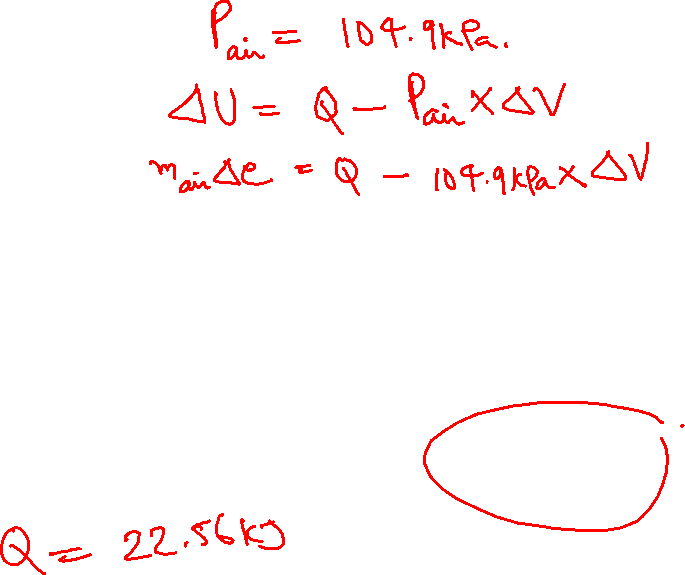 P_air = 104.9kPa.
ΔU = Q − P_air × ΔV
m_air Δe = Q − 104.9kPa × ΔV
Q = 22.56kJ